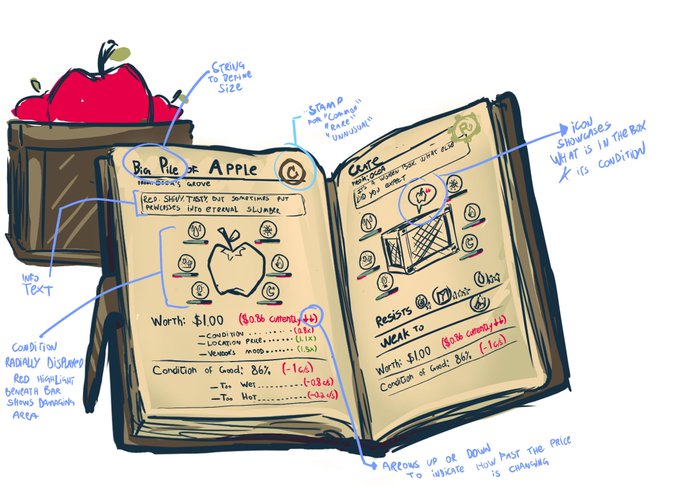 STRING
TO DEFINE
SIZE
STAMP
FOR "COMMON"
"RARE"
"UNUSUAL"
ICON
SHOWCASES
WHAT IS IN THE BOX
& ITS CONDITION
BIG PILE OF APPLE
GROVE
C
RED, SHINY, TASTY, BUT SOMETIMES PUT
PRINCESSES INTO ETERNAL SLUMBER
INFO
TEXT
CONDITION
RADIALLY DISPLAYED
RED HIGHLIGHT
BENEATH BAR
SHOWS DAMAGING
AREA
WORTH: $1.00 ($0.86 CURRENTLY ↓↓)
— CONDITION ........ (0.8x)
— LOCATION PRICE.... (1.1x)
— VENDORS MOOD..... (1.5x)
CONDITION OF GOOD: 86% (-1 c/s)
— TOO WET ........ (-0.8 c/s)
— TOO HOT ........ (-0.2 c/s)
R
IT'S A WOODEN BOX, WHAT ELSE
DID YOU EXPECT
RESISTS
WEAK TO
WORTH: $1.00 ($0.86 CURRENTLY ↓↓)
CONDITION OF GOOD: 86% (-1 c/s)
ARROWS UP OR DOWN
TO INDICATE HOW FAST THE PRICE
IS CHANGING